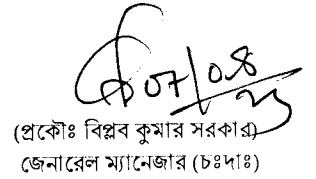 07/08/23
(প্রকৌঃ বিপ্লব কুমার সরকার)
জেনারেল ম্যানেজার (চঃদাঃ)